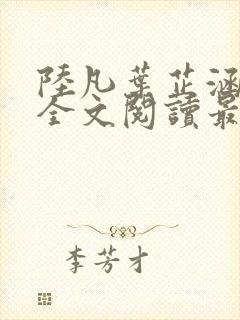 陸凡葉芷涵
全文閱讀最
李芳才